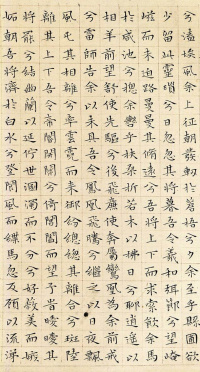 兮溘埃風余上征朝發軔於蒼梧兮夕余至乎縣圃欲
少留此靈瑣兮日忽忽其將暮吾令羲和弭節兮望崦
嵫而未迫路曼曼其脩遠兮吾將上下而求索飲余馬
於咸池兮總余轡乎扶桑折若木以拂日兮聊逍遙以
相羊前望舒使先驅兮後飛廉使奔屬鸞皇為余前戒
兮雷師告余以未具吾令鳳鳥飛騰兮繼之以日夜飄
風屯其相離兮率雲霓而來御紛總總其離合兮斑陸
離其上下吾令帝閽開關兮倚閶闔而望予時曖曖其
將罷兮結幽蘭以延佇世溷濁而不分兮好蔽美而嫉
妬朝吾將濟於白水兮登閬風而緤馬忽反顧以流涕